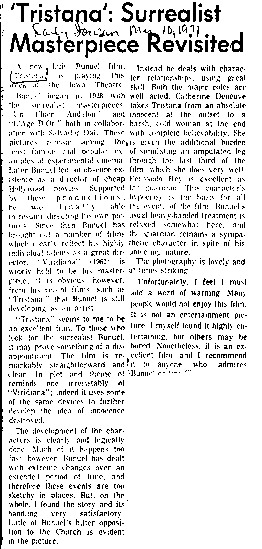 'Tristana': Surrealist
Daily Iowan May 10, 1971
Masterpiece Revisited
A new Luis Bunuel film,
"Tristana" is playing this
week at the Iowa Theatre.
Bunuel began in 1928 with
the surrealist masterpieces
"Un Chien Andalou" and
"L'Age D'Or," both in collabor-
ation with Salvador Dali. These
pictures remain among the
most famous and popular ex-
amples of experimental cinema.
Later Bunuel led an obscure ex-
istence as a director of cheap
Hollywood movies. Supported
by these
to resume directing his own pic-
tures. Since then Bunuel has
brought out a number of films
which clearly reflect his highly
individual talents as a great dir-
ector. "Viridiana" (1962) is
widely held to be his master-
piece. It is obvious, however,
from his recent films, such as
"Tristana," that Bunuel is still
developing as an artist.
"Tristana" seems to me to be
an excellent film. To those who
look for the surrealist Bunuel,
it may prove something of a dis-
appointment. The film is re-
markably straightforward and
clear in plot and theme. It
reminds one irresistably of
"Viridiana"; indeed it uses some
of the same devices to further
develop the idea of innocence
destroyed.
The development of the char-
acters is clearly and logically
done. Much of it happens too
fast, however. Bunuel has dealt
with extreme changes over an
extended period of time, and
therefore these events are too
sketchy in places. But, on the
whole, I found the story and its
handling very satisfactory.
Little of Bunuel's bitter opposi-
tion to the Church is evident
in the picture.
Instead he deals with charac-
ter relationships, using great
skill. Both the major roles are
well acted. Catherine Deneuve
takes Tristana from an absolute
innocent at the outset to a
harsh, cold woman at the end
with complete believability. She
has even the additional burden
of simulating an amputated leg
through the last third of the
film, which she does very well.
Fernando Rey is excellent as
the guardian. This character's
hypocrisy is the basis for all
the events of the film. Bunuel's
usual heavy-handed treatment is
relaxed somewhat here, and
the guardian remains a sympa-
thetic character in spite of his
nature.
The photography is lovely and
at times striking.
Unfortunately, I feel I must
add a word of warning. Many
people would not enjoy this film.
It is not an entertainment pic-
ture. I myself found it highly en-
tertaining, but others may be
bored. Nonetheless, it is an ex-
cellent film, and I recommend
it to anyone who admires